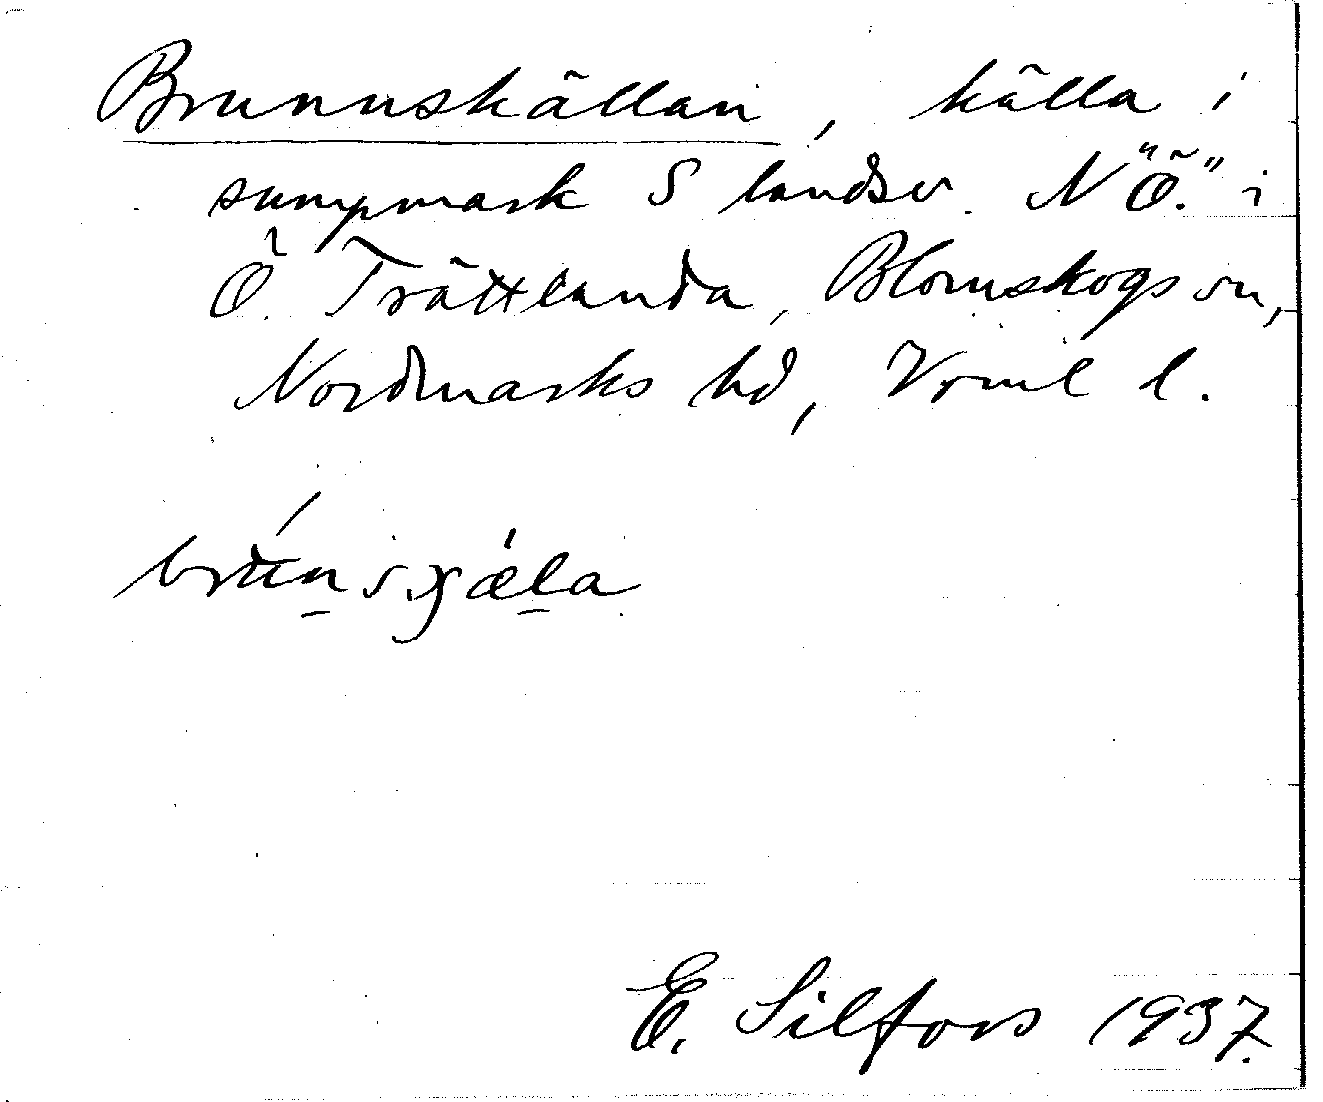 Brunnskällan, källa i
sumpmark S landsv. N "Ö." i
Ö. Trättlanda, Blomskogs sn,
Nordmarks hd, Vrml l.
E. Silfors 1937.